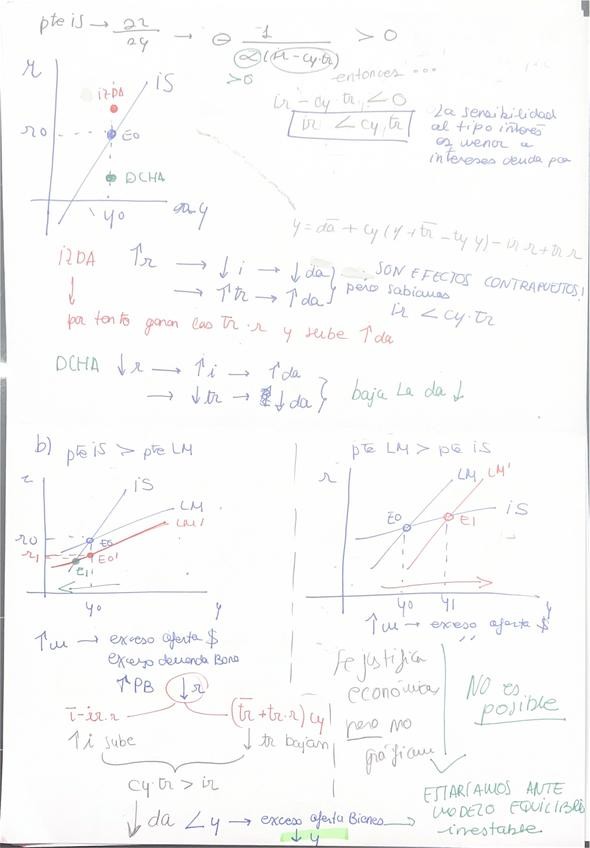 pte is → ∂r/∂y → ⊖ 1/α(ir - cy·tr) > 0
>0
entonces ...
ir - cy·tr < 0
ir < cy·tr
La sensibilidad
al tipo interés
es menor a
intereses deuda por
r
iS
IZDA
r0
E0
DCHA
y0
y
y = da + cy (y + tr - ty y) - ir r + tr r
IZDA ↑r → ↓i → ↓da
→ ↑tr → ↑da
SON EFECTOS CONTRAPUESTOS!
pero sabiamos
ir < cy·tr
por tanto ganan las tr·r y sube ↑da
DCHA ↓r → ↑i → ↑da
→ ↓tr → ↓da
baja La da ↓
b) pte iS > pte LM
r
iS
LM
LM'
r0
E0
r1
E0'
E1
y0
y
↑m → exceso oferta $
exceso demanda Bono
↑PB ↓r
i-ir.r
(tr+tr·r) cy
↑i sube
↓ tr bajan
cy·tr > ir
↓ da < y → exceso oferta Bienes →
↓ y
pte LM > pte iS
r
LM
LM'
iS
E0
E1
y0
y1
y
↑m → exceso oferta $
Se justifica
económica
pero no
NO es
posible
ESTARÍAMOS ANTE
MODELO EQUILIBRIO
inestable